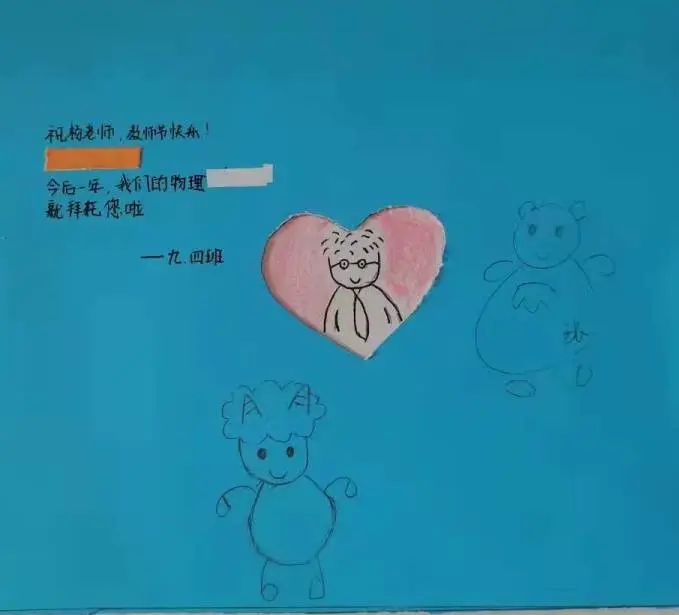 祝杨老师，教师节快乐！
今后一年，我们的物理
就拜托您啦
—九.四班